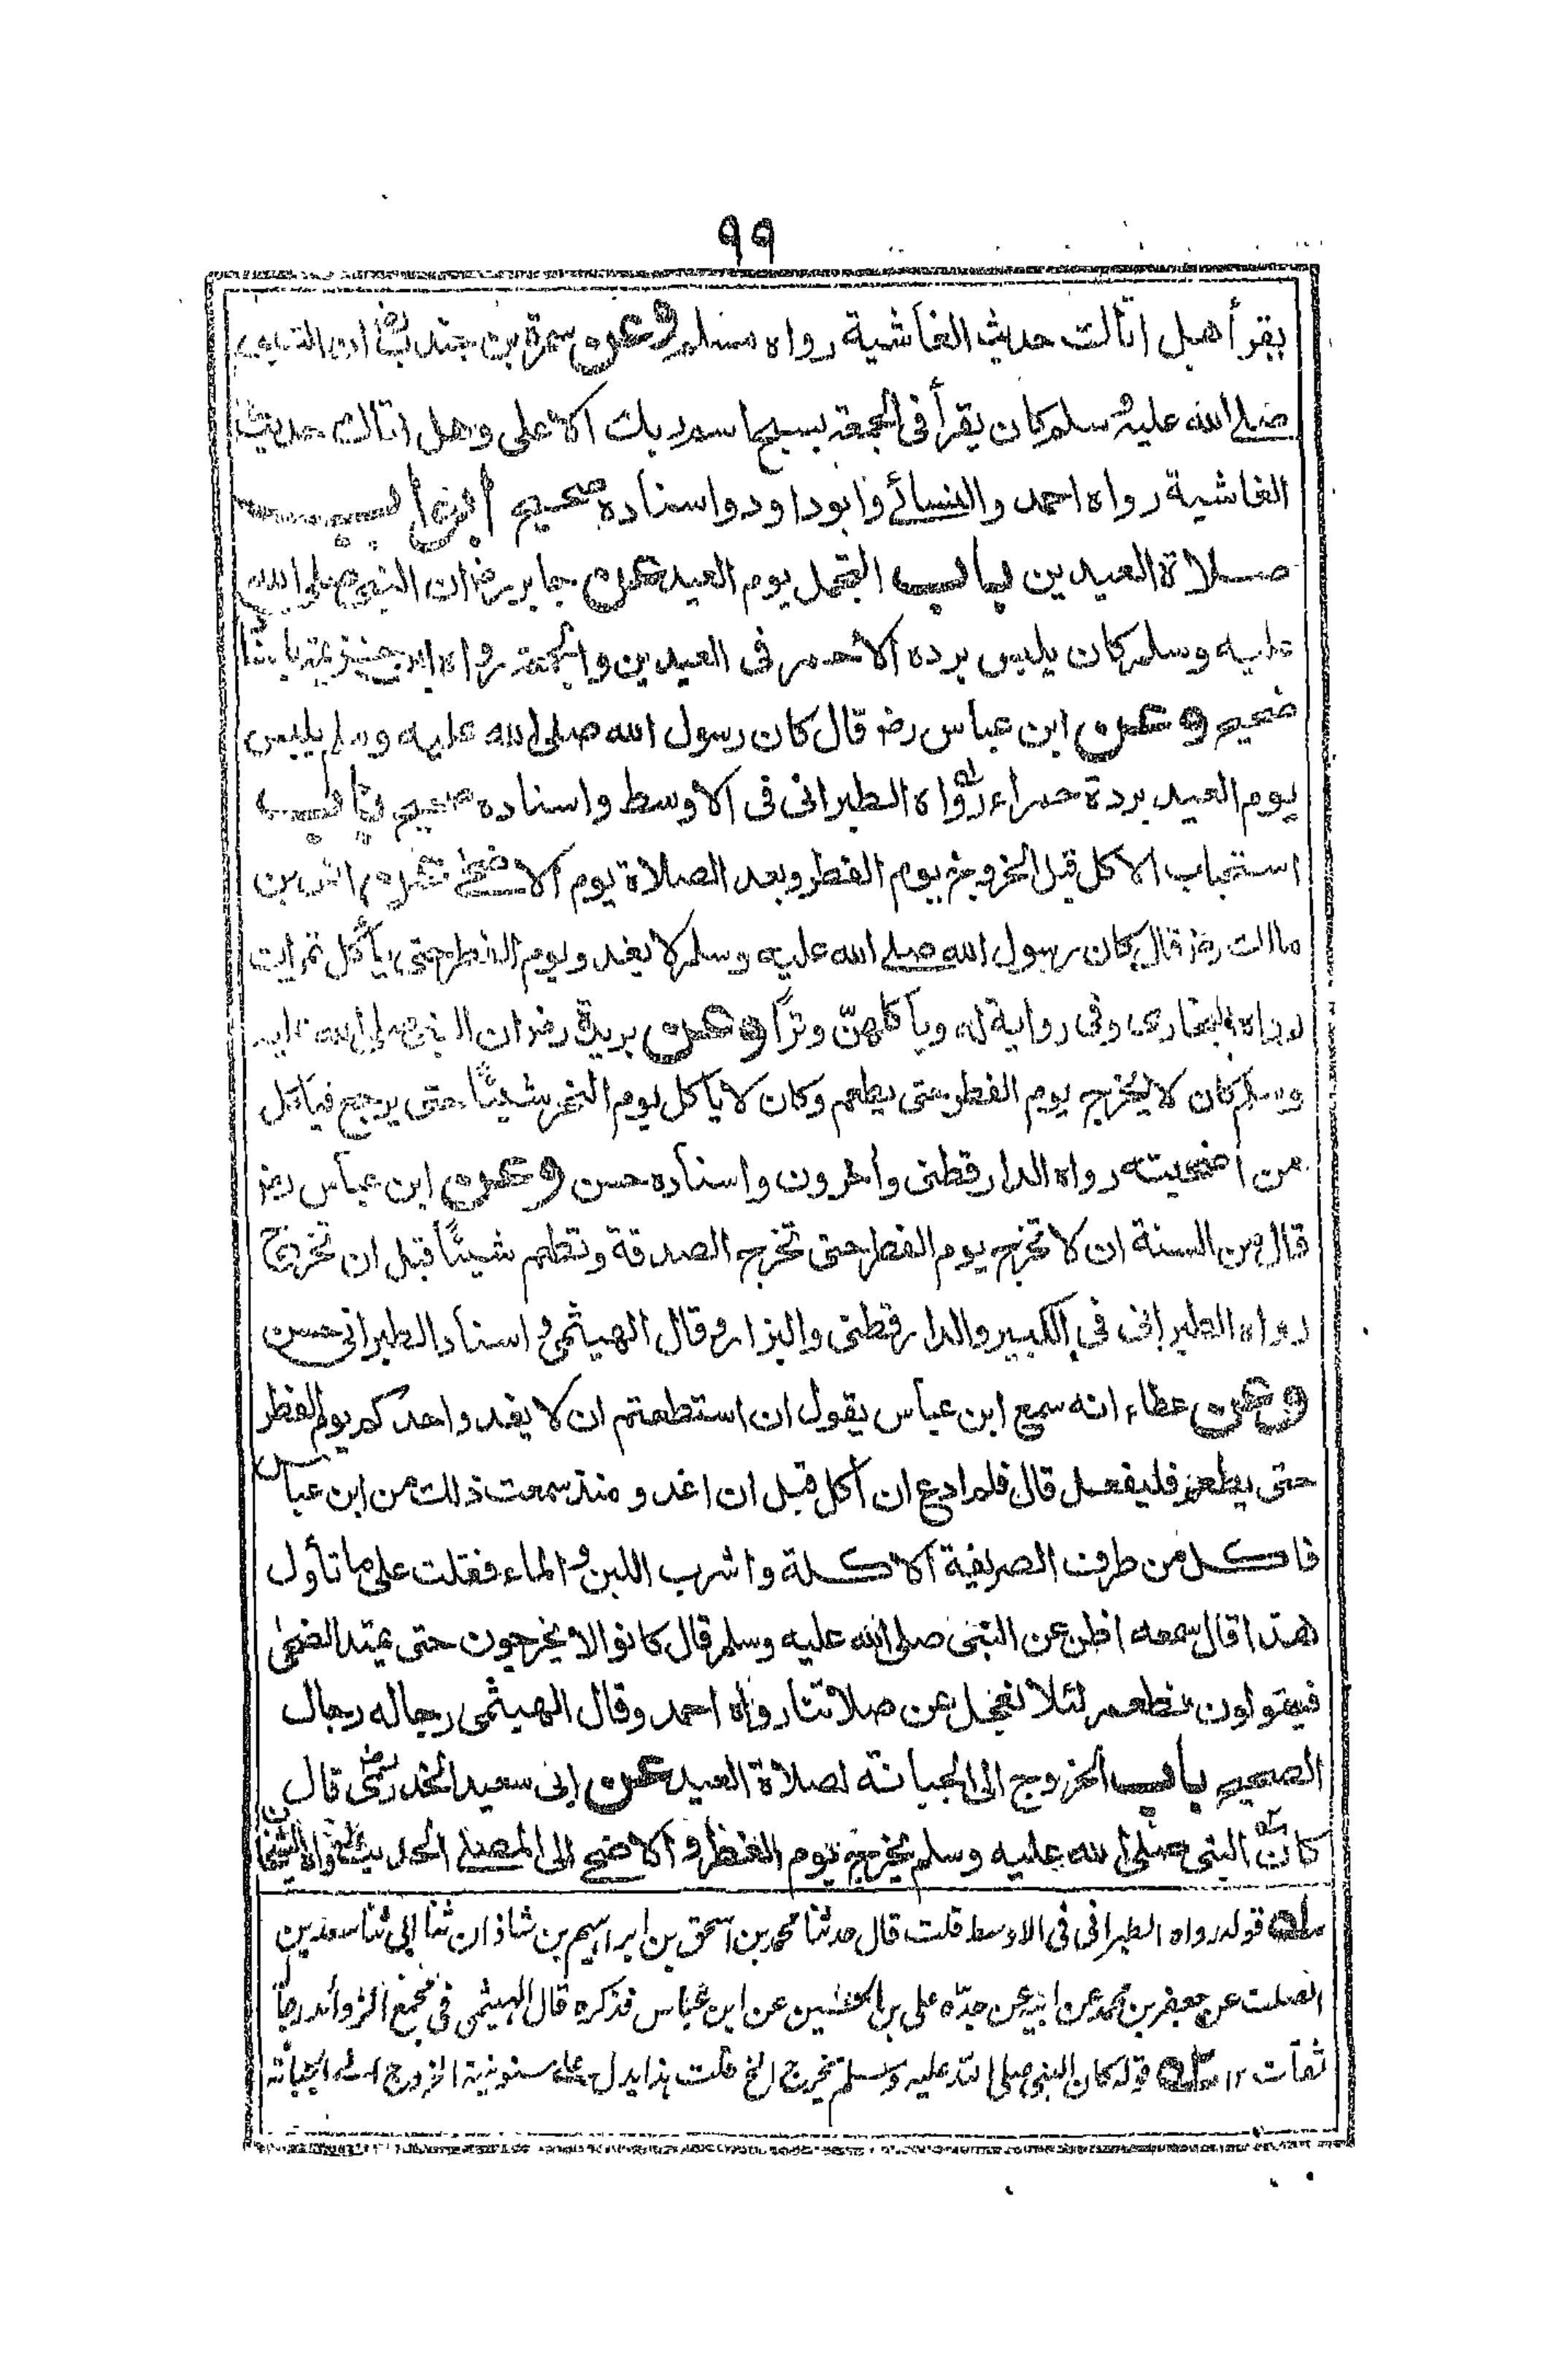 ٩٩
يقرأ هل اتاك حديث الغاشية رواه مسلم وعن سمرة بن جندب رض ان النبى
صلے الله عليه وسلم كان يقرأ فى الجمعة بسبح اسم ربك الاعلى وهل اتاك حديث
الغاشية رواه احمد والنسائے وابوداود واسناده صحيح ابواب
صلاة العيدين باب التجمل يوم العيد عن جابر رض ان النبى صلى الله
عليه وسلم كان يلبس برده الاحمر فى العيدين والجمعة رواه ابن خزيمة باسناد
صحيح وعن ابن عباس رض قال كان رسول الله صلى الله عليه وسلم يلبس
يوم العيد بردة حمراء رواه الطبرانى فى الاوسط واسناده صحيح باب
استحباب الاكل قبل الخروج يوم الفطر وبعد الصلاة يوم الاضحے عن انس بن
مالك رض قال كان رسول الله صلے الله عليه وسلم لا يغدو يوم الفطر حتى يأكل تمرات
رواه البخارى وفى رواية له ويأكلهن وترًا وعن بريدة رض ان النبى صلى الله عليه
وسلم كان لا يخرج يوم الفطر حتى يطعم وكان لا يأكل يوم النحر شيئًا حتى يرجع فيأكل
من أضحيته رواه الدارقطنى وأخرون واسناده حسن وعن ابن عباس رض
قال من السنة ان لا تخرج يوم الفطر حتى تخرج الصدقة وتطعم شيئًا قبل ان تخرج
رواه الطبرانى فى الكبير والدارقطنى والبزار وقال الهيثمى واسناد الطبرانى حسن
وعن عطاء انه سمع ابن عباس يقول ان استطعتم ان لا يغدو احدكم يوم الفطر
حتى يطعم فليفعل قال فلم ادع ان أكل قبل ان اغدو منذ سمعت ذلك من ابن عباس
فاكل من طرف الصريفة الاكلة واشرب اللبن والماء فقلت على ما تأول
هذا قال سمعه اظن عن النبى صلى الله عليه وسلم قال كانوا لا يخرجون حتى يمتد الضحى
فيقولون نطعم لئلا نعجل عن صلاتنا رواه احمد وقال الهيثمى رجاله رجال
الصحيح باب الخروج الى الجبانة لصلاة العيد عن ابى سعيد الخدرى رض قال
كان النبى صلى الله عليه وسلم يخرج يوم الفطر والاضحى الى المصلے الحديث رواه الشيخان
له قوله رواه الطبرانى فى الاوسط قلت قال حدثنا محمد بن اسحق بن ابراہيم بن شاذان ثنا ابى ثنا سعد بن
الصلت عن جعفر بن محمد عن ابيه عن جدّه على بن الحسين عن ابن عباس فذكره قال الہيثمى فى مجمع الزوائد رجاله
ثقات ١٢ قوله كان النبى صلى الله عليه وسلم يخرج الخ قلت ہذا يدل على سنونية الخروج الے الجبانة